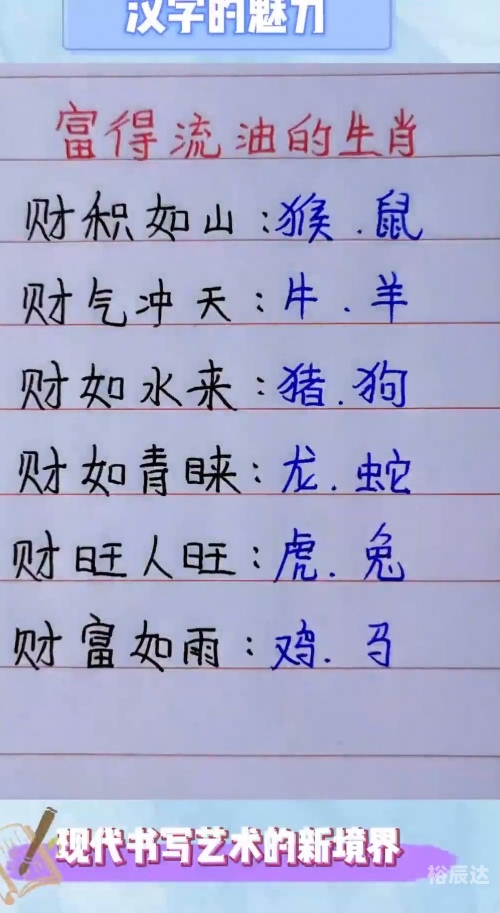 汉字的魅力
富得流油的生肖
财积如山:猴.鼠
财气冲天:牛.羊
财如水来:猪.狗
财如青睐:龙.蛇
财旺人旺:虎.兔
财富如雨:鸡.马
现代书写艺术的新境界
裕辰达